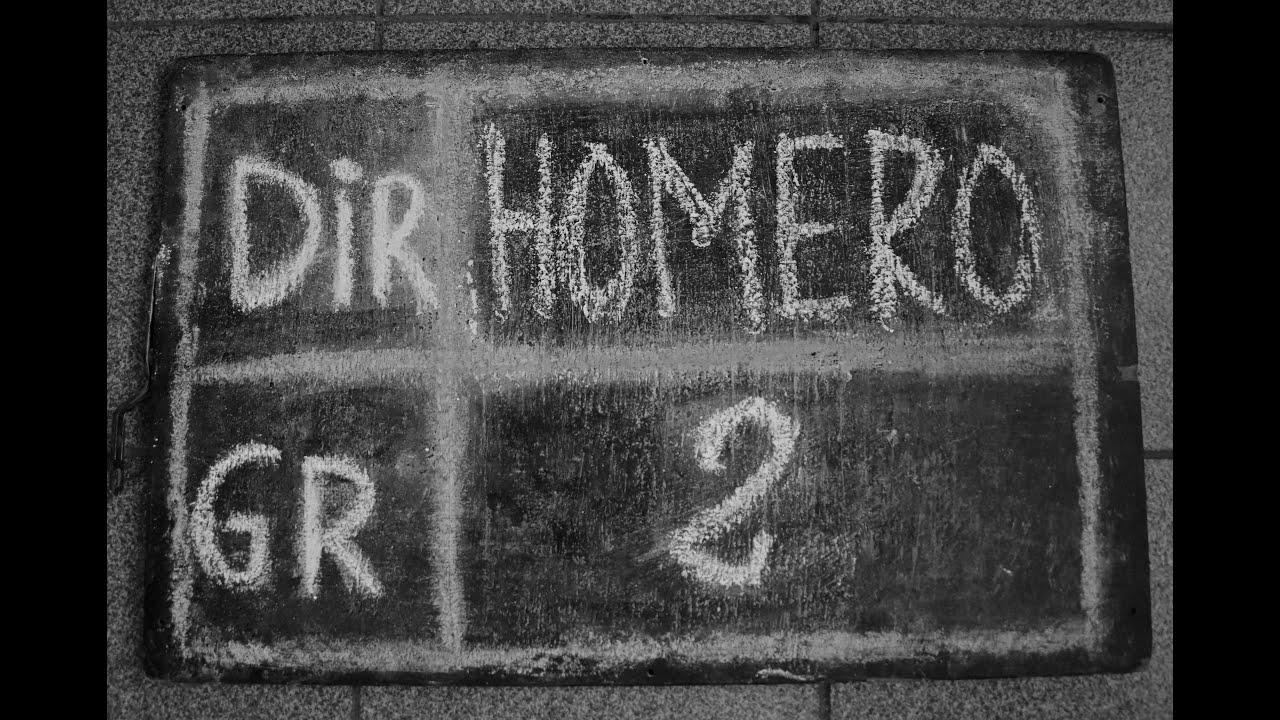 DiR HOMERO
GR 2